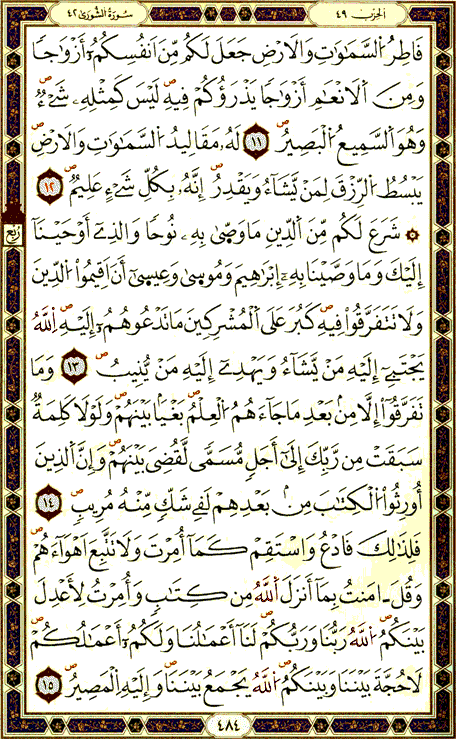 الحزب ٤٩
سورة الشورى ٤٢
فَاطِرُ السَّمَٰوَٰتِ وَالَارْضِ جَعَلَ لَكُم مِّنَ اَنفُسِكُمُۥٓ أَزْوَٰجًا
وَمِنَ اَلَانْعَٰمِ أَزْوَٰجًا يَذْرَؤُكُمْ فِيهِ لَيْسَ كَمِثْلِهِۦ شَےْءٌ
وَهُوَ اَلسَّمِيعُ اُلْبَصِيرُ ١١ لَهُۥ مَقَالِيدُ السَّمَٰوَٰتِ وَالَارْضِ
يَبْسُطُ اُلرِّزْقَ لِمَنْ يَّشَآءُ وَيَقْدِرُ إِنَّهُۥ بِكُلِّ شَےْءٍ عَلِيمٌ ١٢
۞ شَرَعَ لَكُم مِّنَ اَلدِّينِ مَا وَصّ۪ىٰ بِهِۦ نُوحًا وَالذِےٓ أَوْحَيْنَآ
إِلَيْكَ وَمَا وَصَّيْنَا بِهِۦٓ إِبْرَٰهِيمَ وَمُوس۪ىٰ وَعِيس۪ىٰٓ أَنَ اَقِيمُواْ اُلدِّينَ
وَلَا تَتَفَرَّقُواْ فِيهِ كَبُرَ عَلَى اَلْمُشْرِكِينَ مَا تَدْعُوهُمُۥٓ إِلَيْهِ اِللَّهُ
يَجْتَبِےٓ إِلَيْهِ مَنْ يَّشَآءُ وَيَهْدِےٓ إِلَيْهِ مَنْ يُّنِيبُ ١٣ وَمَا
تَفَرَّقُوٓاْ إِلَّا مِنۢ بَعْدِ مَا جَآءَهُمُ اُلْعِلْمُ بَغْيَۢا بَيْنَهُمْ وَلَوْلَا كَلِمَةٌ
سَبَقَتْ مِن رَّبِّكَ إِلَىٰٓ أَجَلٍ مُّسَمًّى لَّقُضِيَ بَيْنَهُمْ وَإِنَّ اَلذِينَ
أُورِثُواْ اُلْكِتَٰبَ مِنۢ بَعْدِهِمْ لَفِے شَكٍّ مِّنْهُ مُرِيبٍ ١٤
فَلِذَٰلِكَ فَادْعُ وَاسْتَقِمْ كَمَآ أُمِرْتَ وَلَا تَتَّبِعَ اَهْوَآءَهُمْ
وَقُلَ اٰمَنتُ بِمَآ أَنزَلَ اَللَّهُ مِن كِتَٰبٍ وَأُمِرْتُ لِأَعْدِلَ
بَيْنَكُمُ اُللَّهُ رَبُّنَا وَرَبُّكُمْ لَنَآ أَعْمَٰلُنَا وَلَكُمُۥٓ أَعْمَٰلُكُمْ
لَا حُجَّةَ بَيْنَنَا وَبَيْنَكُمُ اُللَّهُ يَجْمَعُ بَيْنَنَا وَإِلَيْهِ اِلْمَصِيرُ ١٥
ربع
٤٨٤